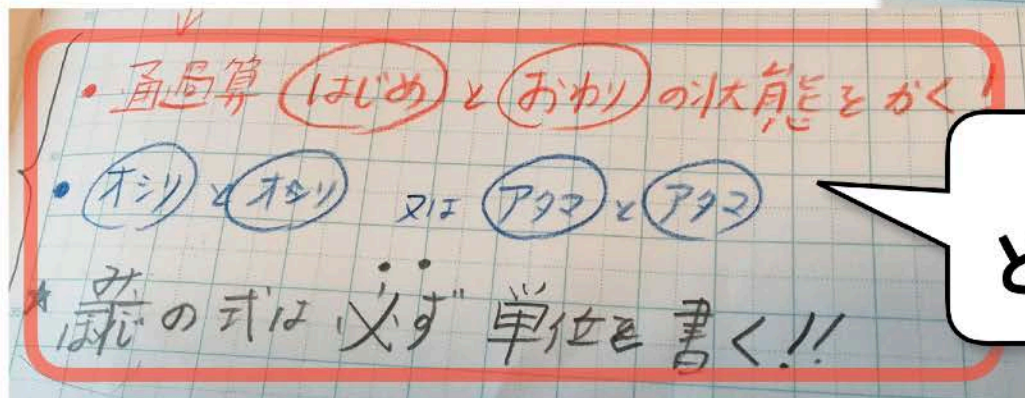 ・通過算 はじめ と おわり の状態をかく!
・オシリ と オシリ 又は アタマ と アタマ
と
み
はじ の式は 必ず 単位を 書く!!